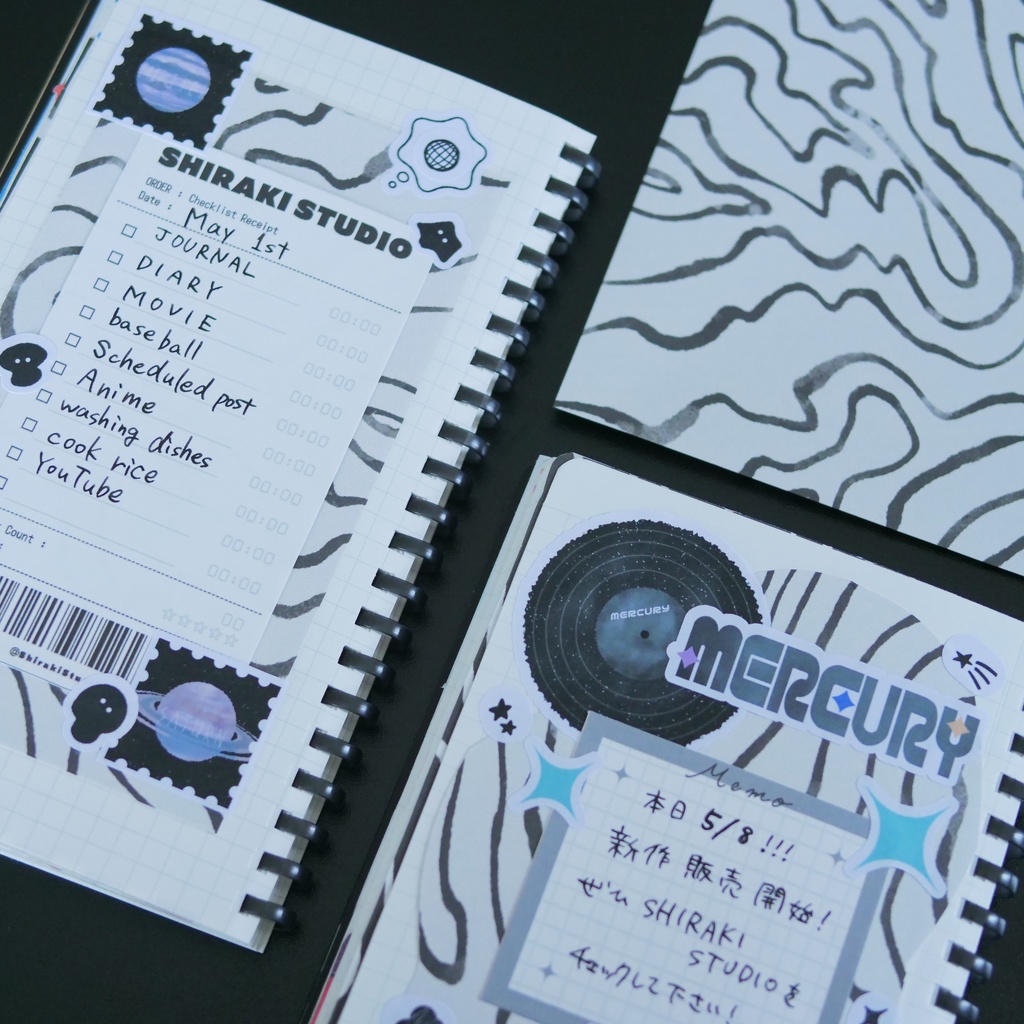 SHIRAKI STUDIO
ORDER : Checklist Receipt
Date : May 1st
JOURNAL
DIARY
MOVIE
baseball
Scheduled post
Anime
washing dishes
cook rice
YouTube
00:00
00:00
00:00
00:00
00:00
00:00
00:00
00:00
00:00
Count :
00
@ShirakiStu
MERCURY
MERCURY
Memo
本日 5/8!!!
新作 販売 開始!
ぜひ SHIRAKI
STUDIOを
チェックして下さい!